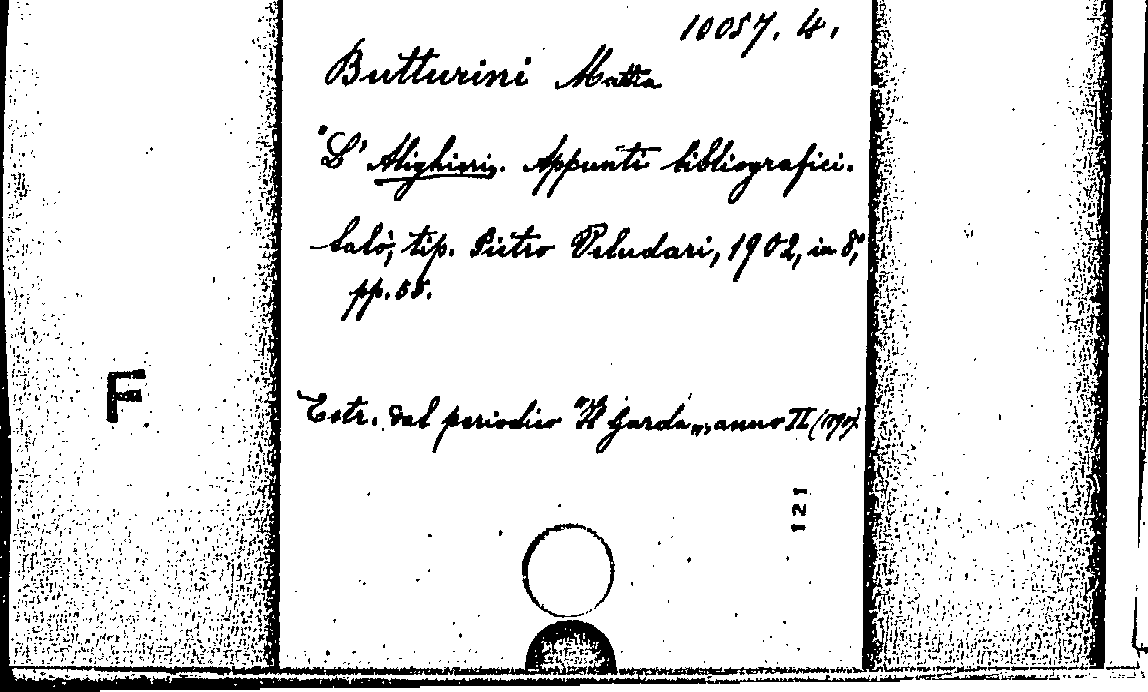 10057. 4.
Butturini Mattia
"L'Alighieri". Appunti bibliografici.
Salò, tip. Pietro Veludari, 1902, in 8°,
pp. 55.
F
Estr. dal periodico "Il Garda", anno II
121